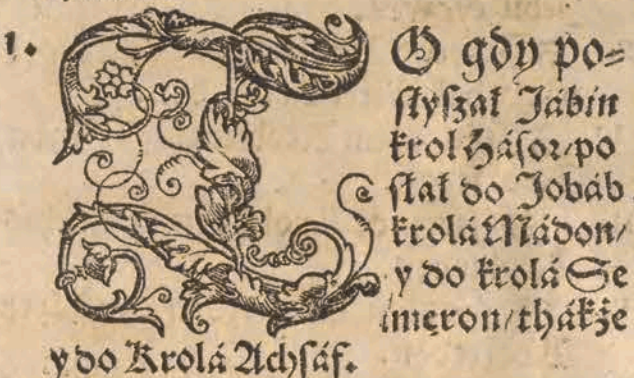 1. TO gdy po=
słyszał Jábin
krol Hásor/po
słał do Jobáb
krolá Mádon/
y do krolá Se
meron/thákże
y do Krolá Achsáf.